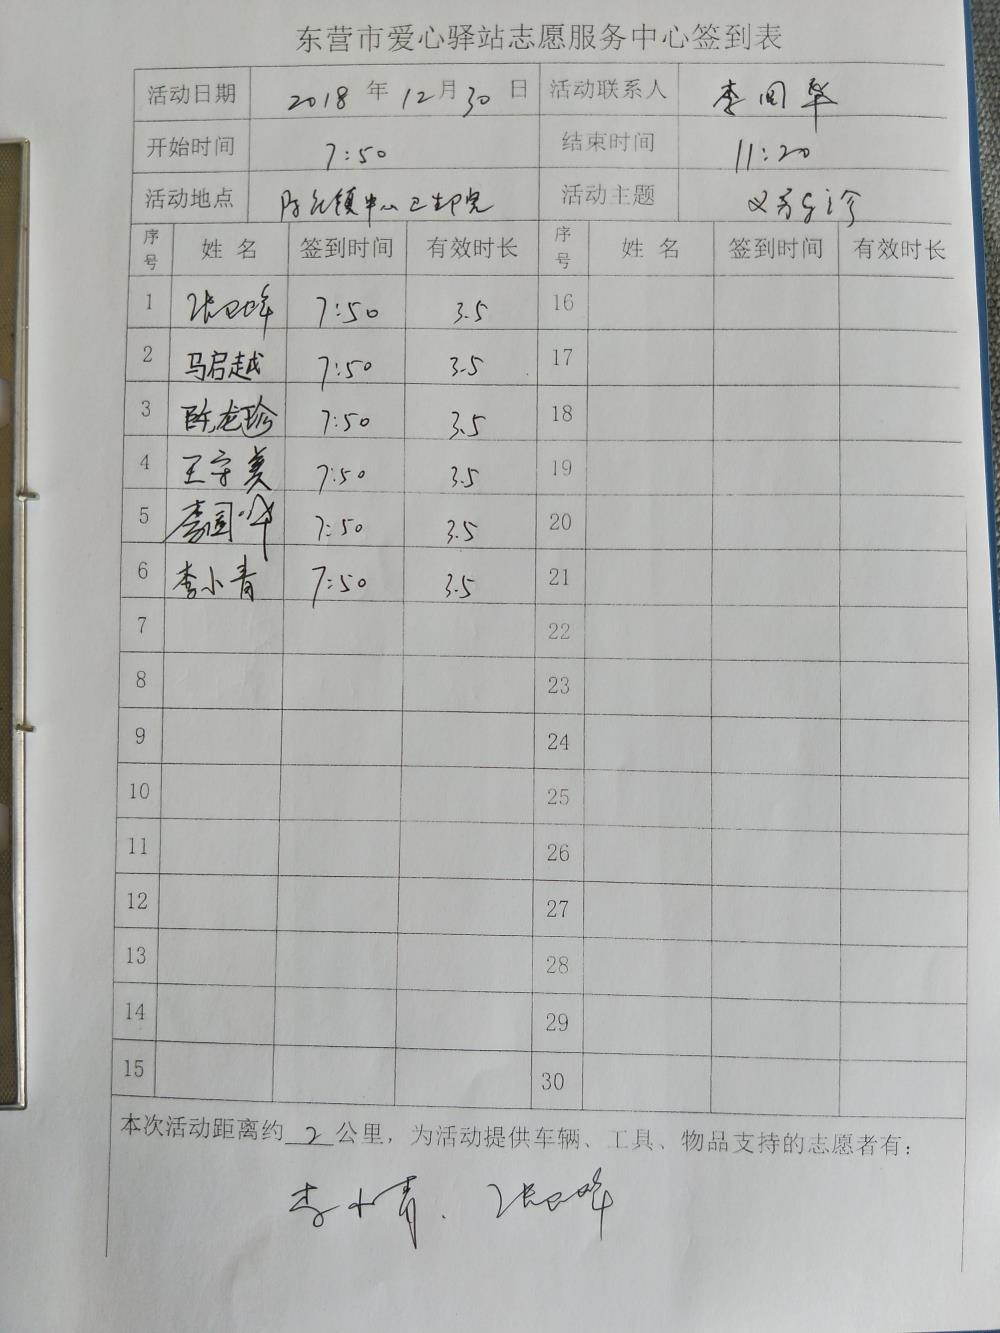 东营市爱心驿站志愿服务中心签到表
活动日期 2018 年 12 月 30 日 活动联系人 李国
开始时间 7:50 结束时间 11:20
活动地点 镇中心卫生院 活动主题 义务诊
序号 姓名 签到时间 有效时长 序号 姓名 签到时间 有效时长
1 张 7:50 3.5 16
2 马启越 7:50 3.5 17
3 陈龙珍 7:50 3.5 18
4 王守美 7:50 3.5 19
5 李国华 7:50 3.5 20
6 李小青 7:50 3.5 21
7 22
8 23
9 24
10 25
11 26
12 27
13 28
14 29
15 30
本次活动距离约 2 公里，为活动提供车辆、工具、物品支持的志愿者有：
李小青. 张